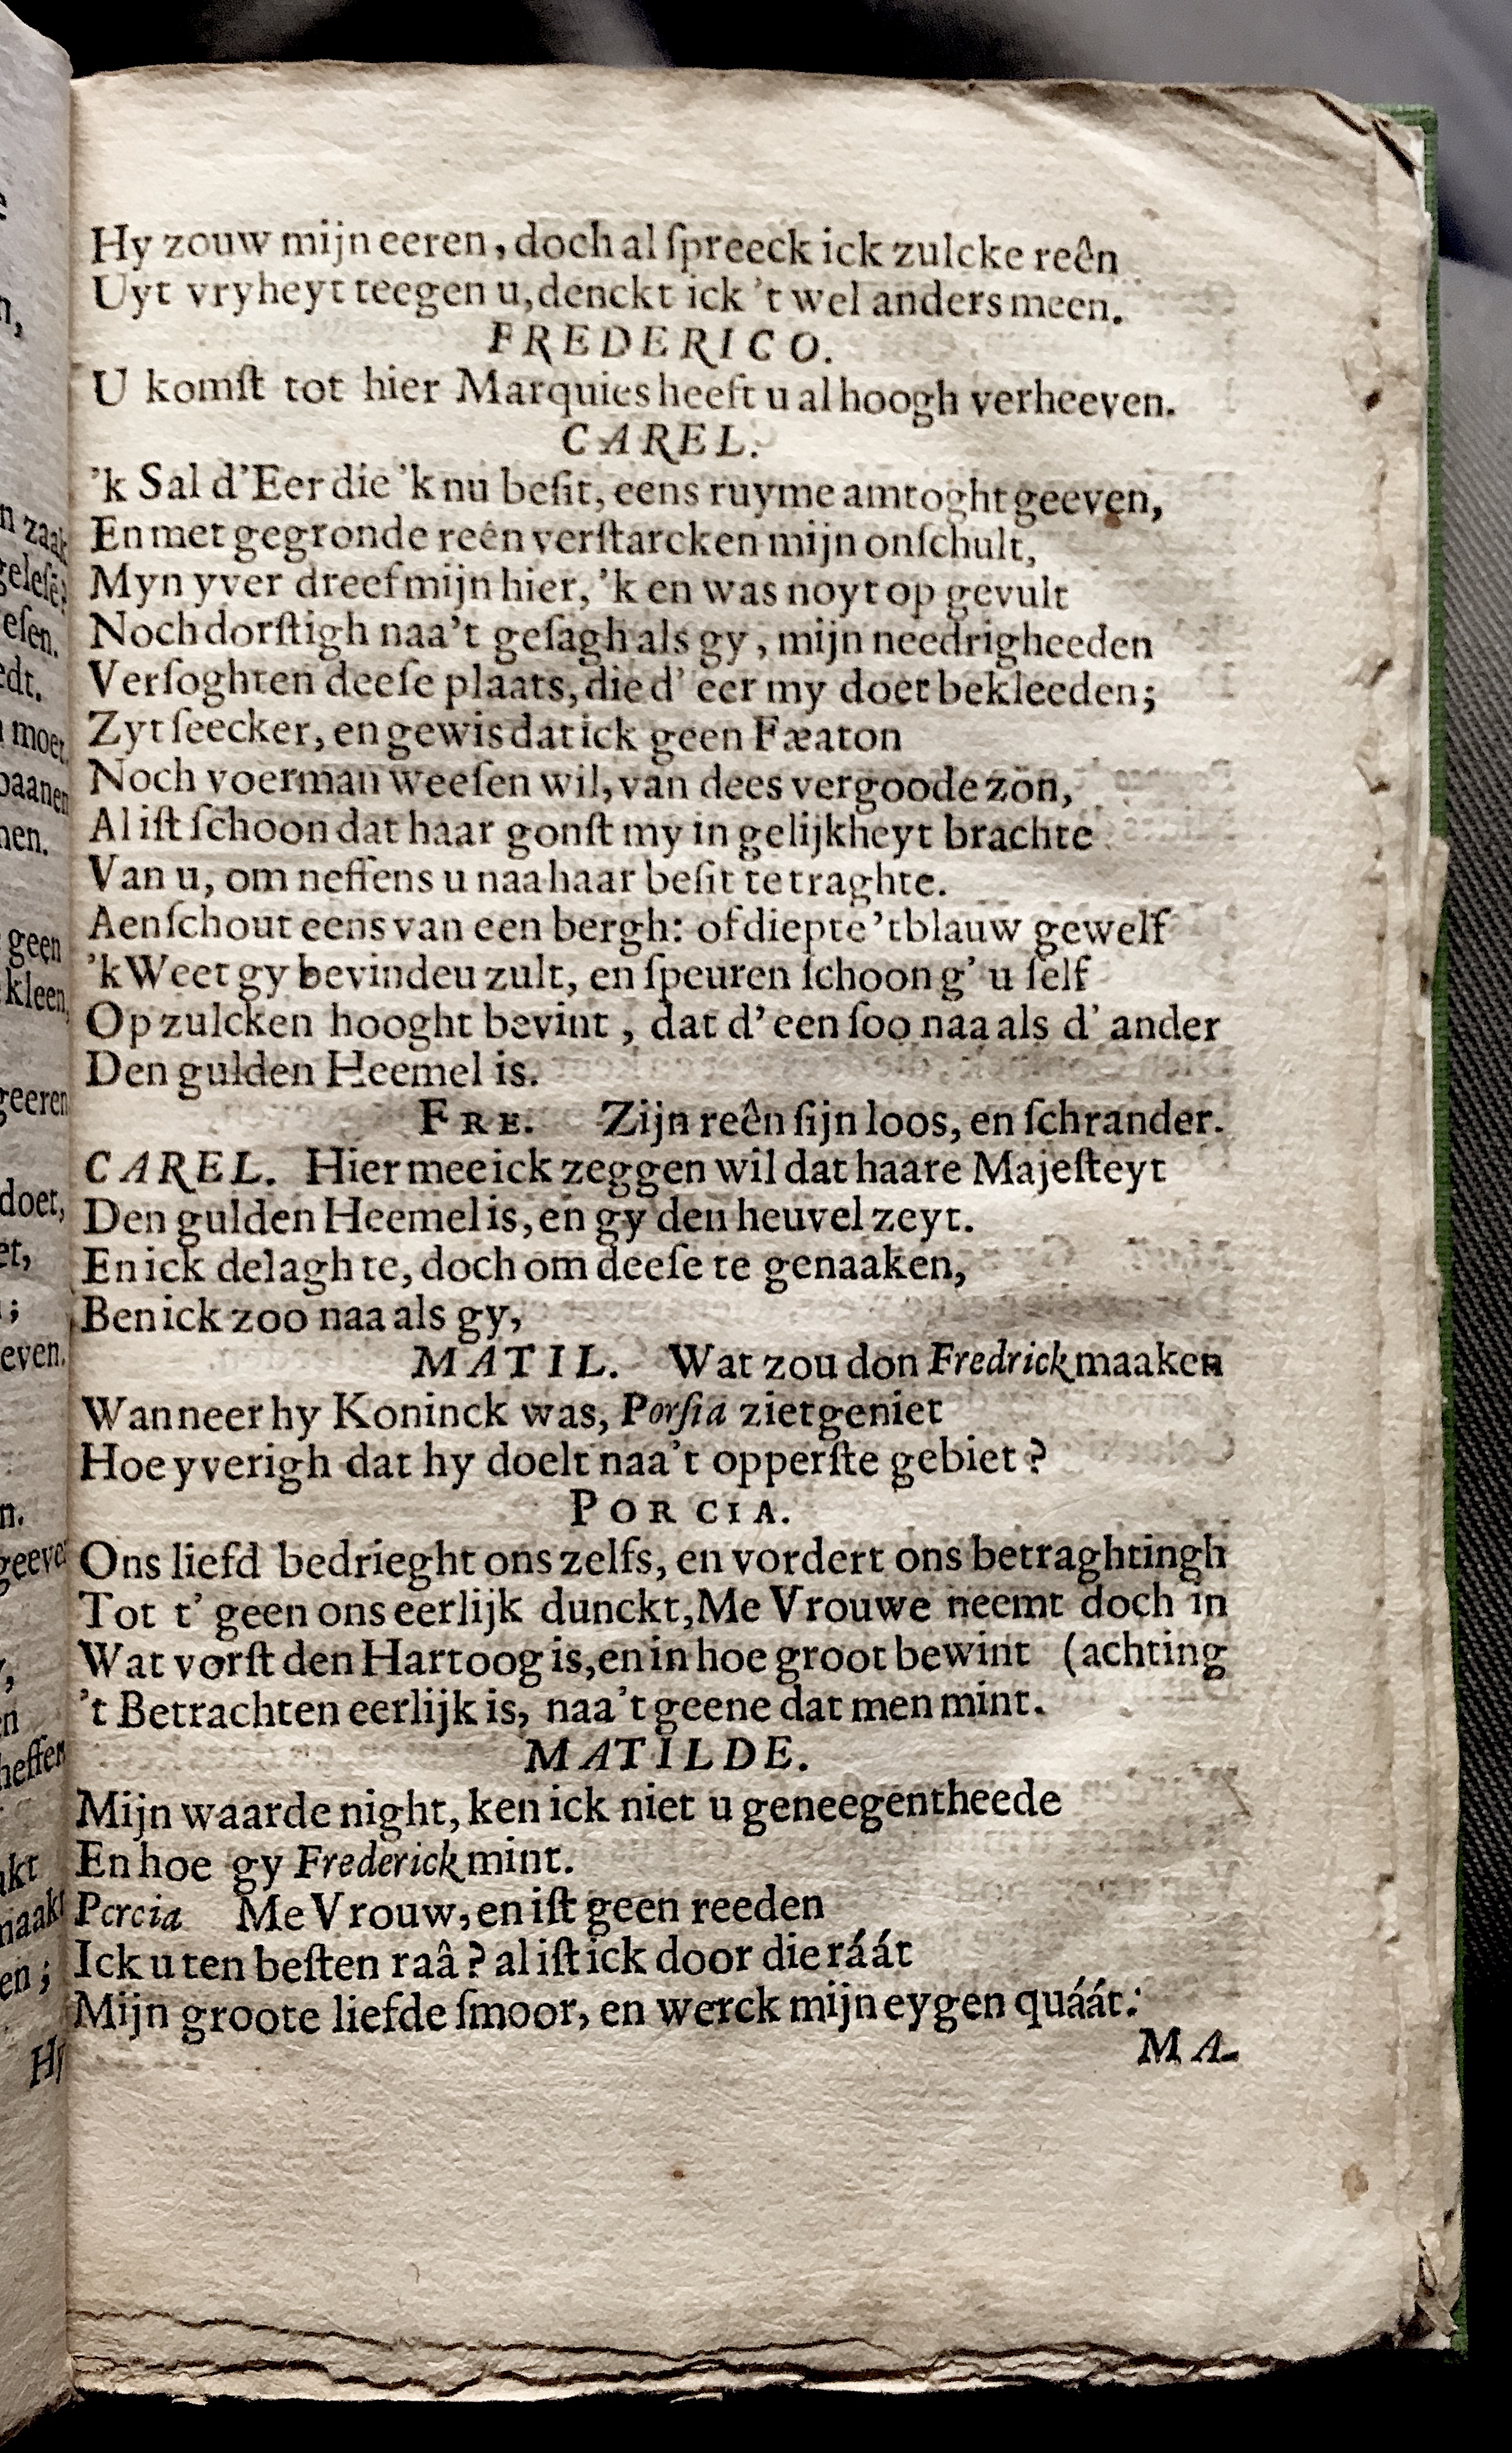 Hy zouw mijn eeren, doch al ſpreeck ick zulcke reên
Uyt vryheyt teegen u, denckt ick 't wel anders meen.
FREDERICO.
U komſt tot hier Marquies heeft u al hoogh verheeven.
CAREL.
'k Sal d'Eer die 'k nu beſit, eens ruyme amtoght geeven,
En met gegronde reên verſtarcken mijn onſchult,
Myn yver dreef mijn hier, 'k en was noyt op gevult
Noch dorſtigh naa't geſagh als gy, mijn needrigheeden
Verſoghten deeſe plaats, die d' eer my doet bekleeden;
Zyt ſeecker, en gewis dat ick geen Fæaton
Noch voerman weeſen wil, van dees vergoode zon,
Al iſt ſchoon dat haar gonſt my in gelijkheyt brachte
Van u, om neffens u naa haar beſit te traghte.
Aenſchout eens van een bergh: of diepte 't blauw gewelf
'k Weet gy bevindeu zult, en ſpeuren ſchoon g' u ſelf
Op zulcken hooght bevint, dat d'een ſoo naa als d' ander
Den gulden Heemel is.
FRE. Zijn reên ſijn loos, en ſchrander.
CAREL. Hier mee ick zeggen wil dat haare Majeſteyt
Den gulden Heemel is, en gy den heuvel zeyt.
En ick de laghte, doch om deeſe te genaaken,
Ben ick zoo naa als gy,
MATIL. Wat zou don Fredrick maaken
Wanneer hy Koninck was, Porſia ziet geniet
Hoe yverigh dat hy doelt naa't opperſte gebiet?
PORCIA.
Ons liefd bedrieght ons zelfs, en vordert ons betraghtingh
Tot t' geen ons eerlijk dunckt, Me Vrouwe neemt doch in
Wat vorſt den Hartoog is, en in hoe groot bewint (achting
't Betrachten eerlijk is, naa't geene dat men mint.
MATILDE.
Mijn waarde night, ken ick niet u geneegentheede
En hoe gy Frederick mint.
Pcrcia Me Vrouw, en iſt geen reeden
Ick u ten beſten raâ? al iſt ick door die ráát
Mijn groote liefde ſmoor, en werck mijn eygen quáát:
MA-